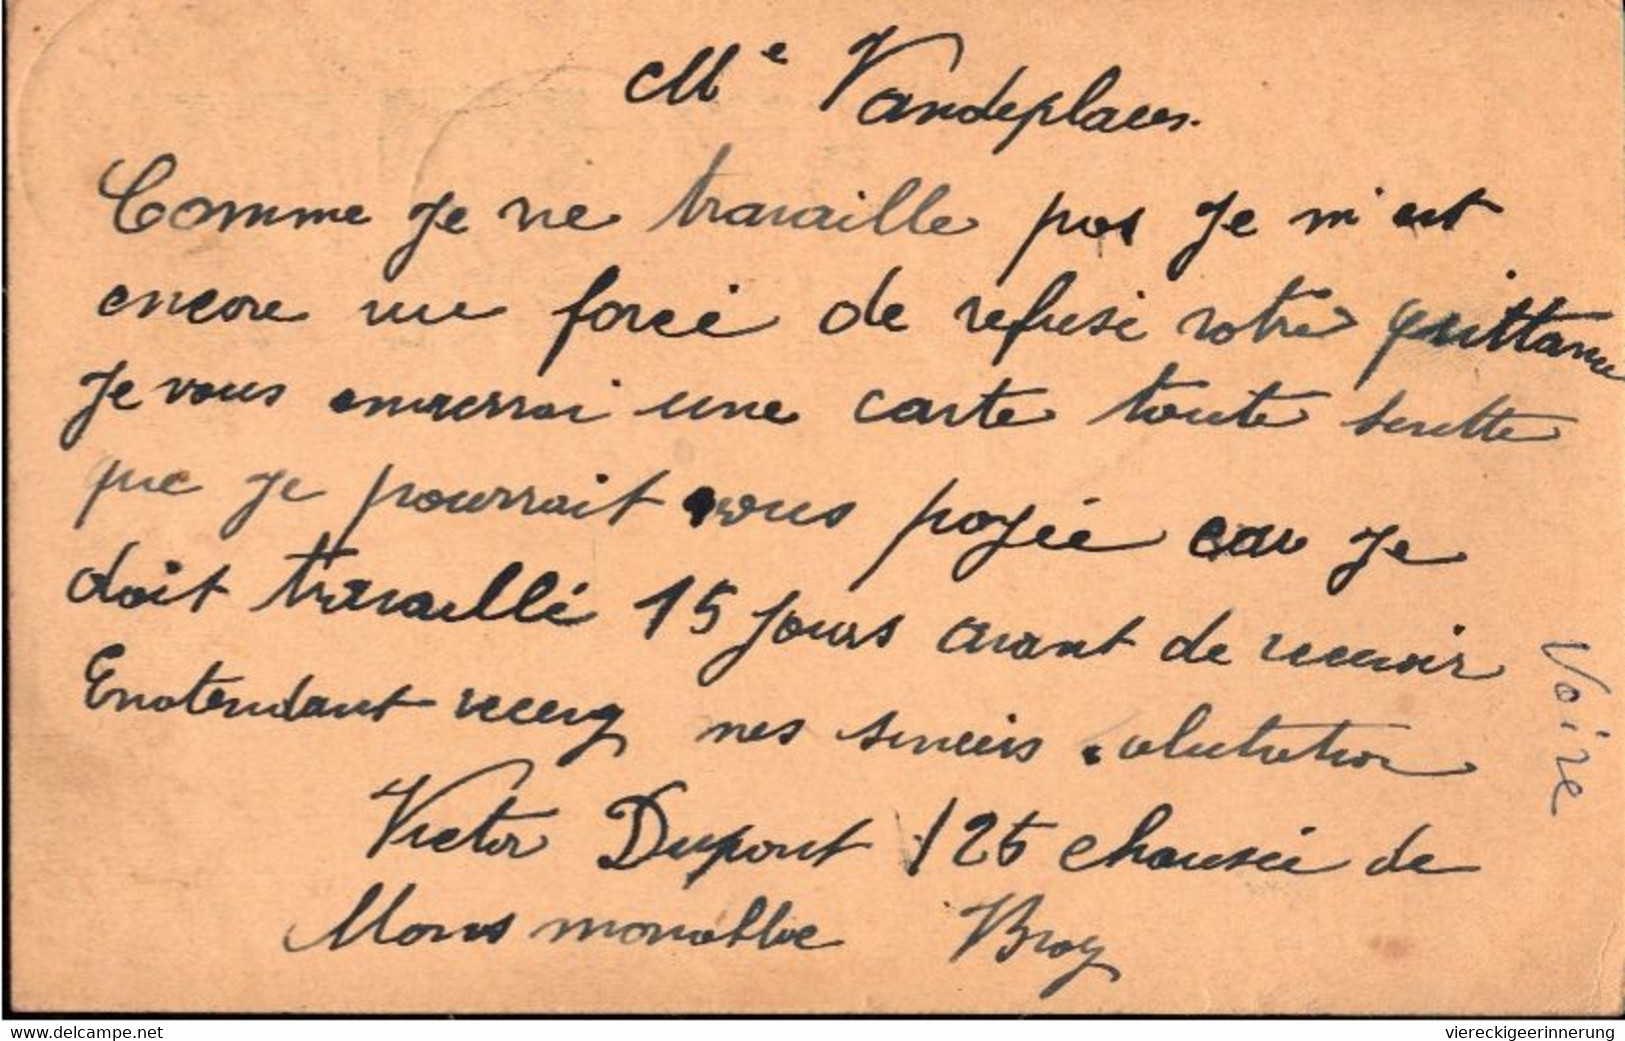 Me Vandeplaces.
Comme Je ne travaille pas Je m'est
encore vue forcé de refusé votre quittance
Je vous enverrai une carte toute suitte
que Je pourrait vous payée car Je
doit travaillé 15 jours avant de recevoir
Enatendant recevez mes sincérs salutation
Victor Dupont 126 chaussée de
Mons Bray
Voire
delcampe.net
viereckigeerinnerung